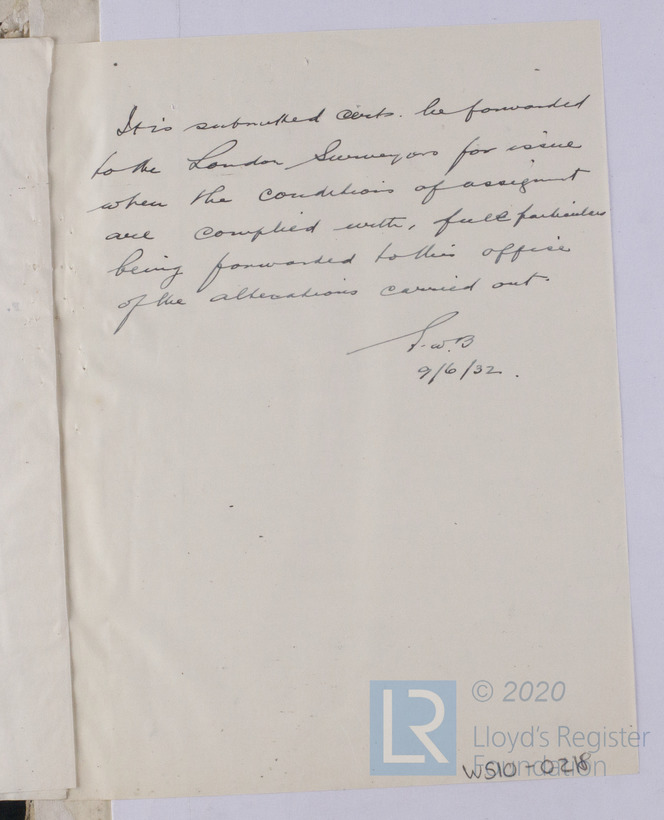 It is submitted certs. be forwarded
to the London Surveyors for issue
when the conditions of assignmt
are complied with, full particulars
being forwarded to this office
of the alterations carried out.
S.W.B
9/6/32.
LR
© 2020
Lloyd's Register
Foundation
W510-0218